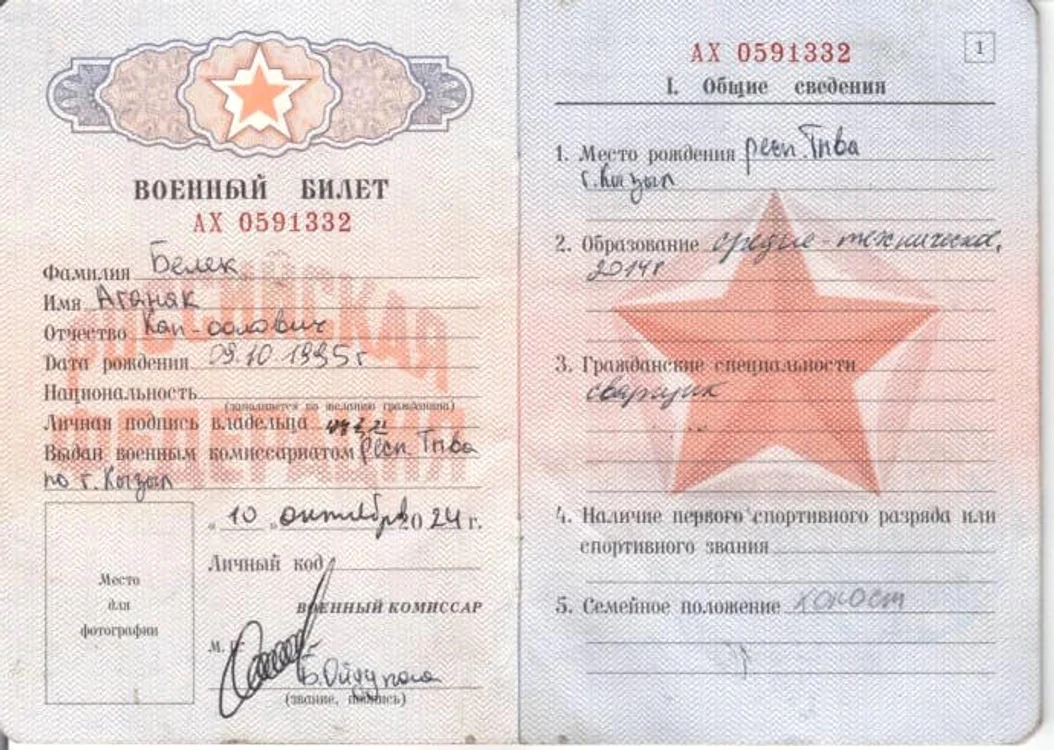 ВОЕННЫЙ БИЛЕТ
АХ 0591332
Фамилия Белек
Имя Аганак
Отчество Кап-оолович
Дата рождения 09.10 1995г
Национальность
(заполняется по желанию гражданина)
Личная подпись владельца
Выдан военным комиссариатом респ. Тыва
по г. Кызыл
« 10 » октября 2024 г.
Место
для
фотографии
Личный код
ВОЕННЫЙ КОМИССАР
М.
(звание, подпись)
АХ 0591332
1
I. Общие сведения
1. Место рождения респ. Тыва
г. Кызыл
2. Образование средне-техническое,
2014г
3. Гражданские специальности
сварщик
4. Наличие первого спортивного разряда или
спортивного звания
5. Семейное положение холост